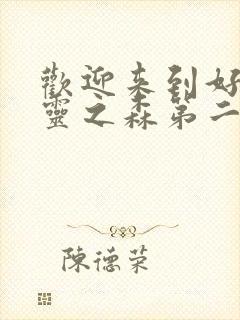 歡迎來到好
靈之森第二
陳德榮